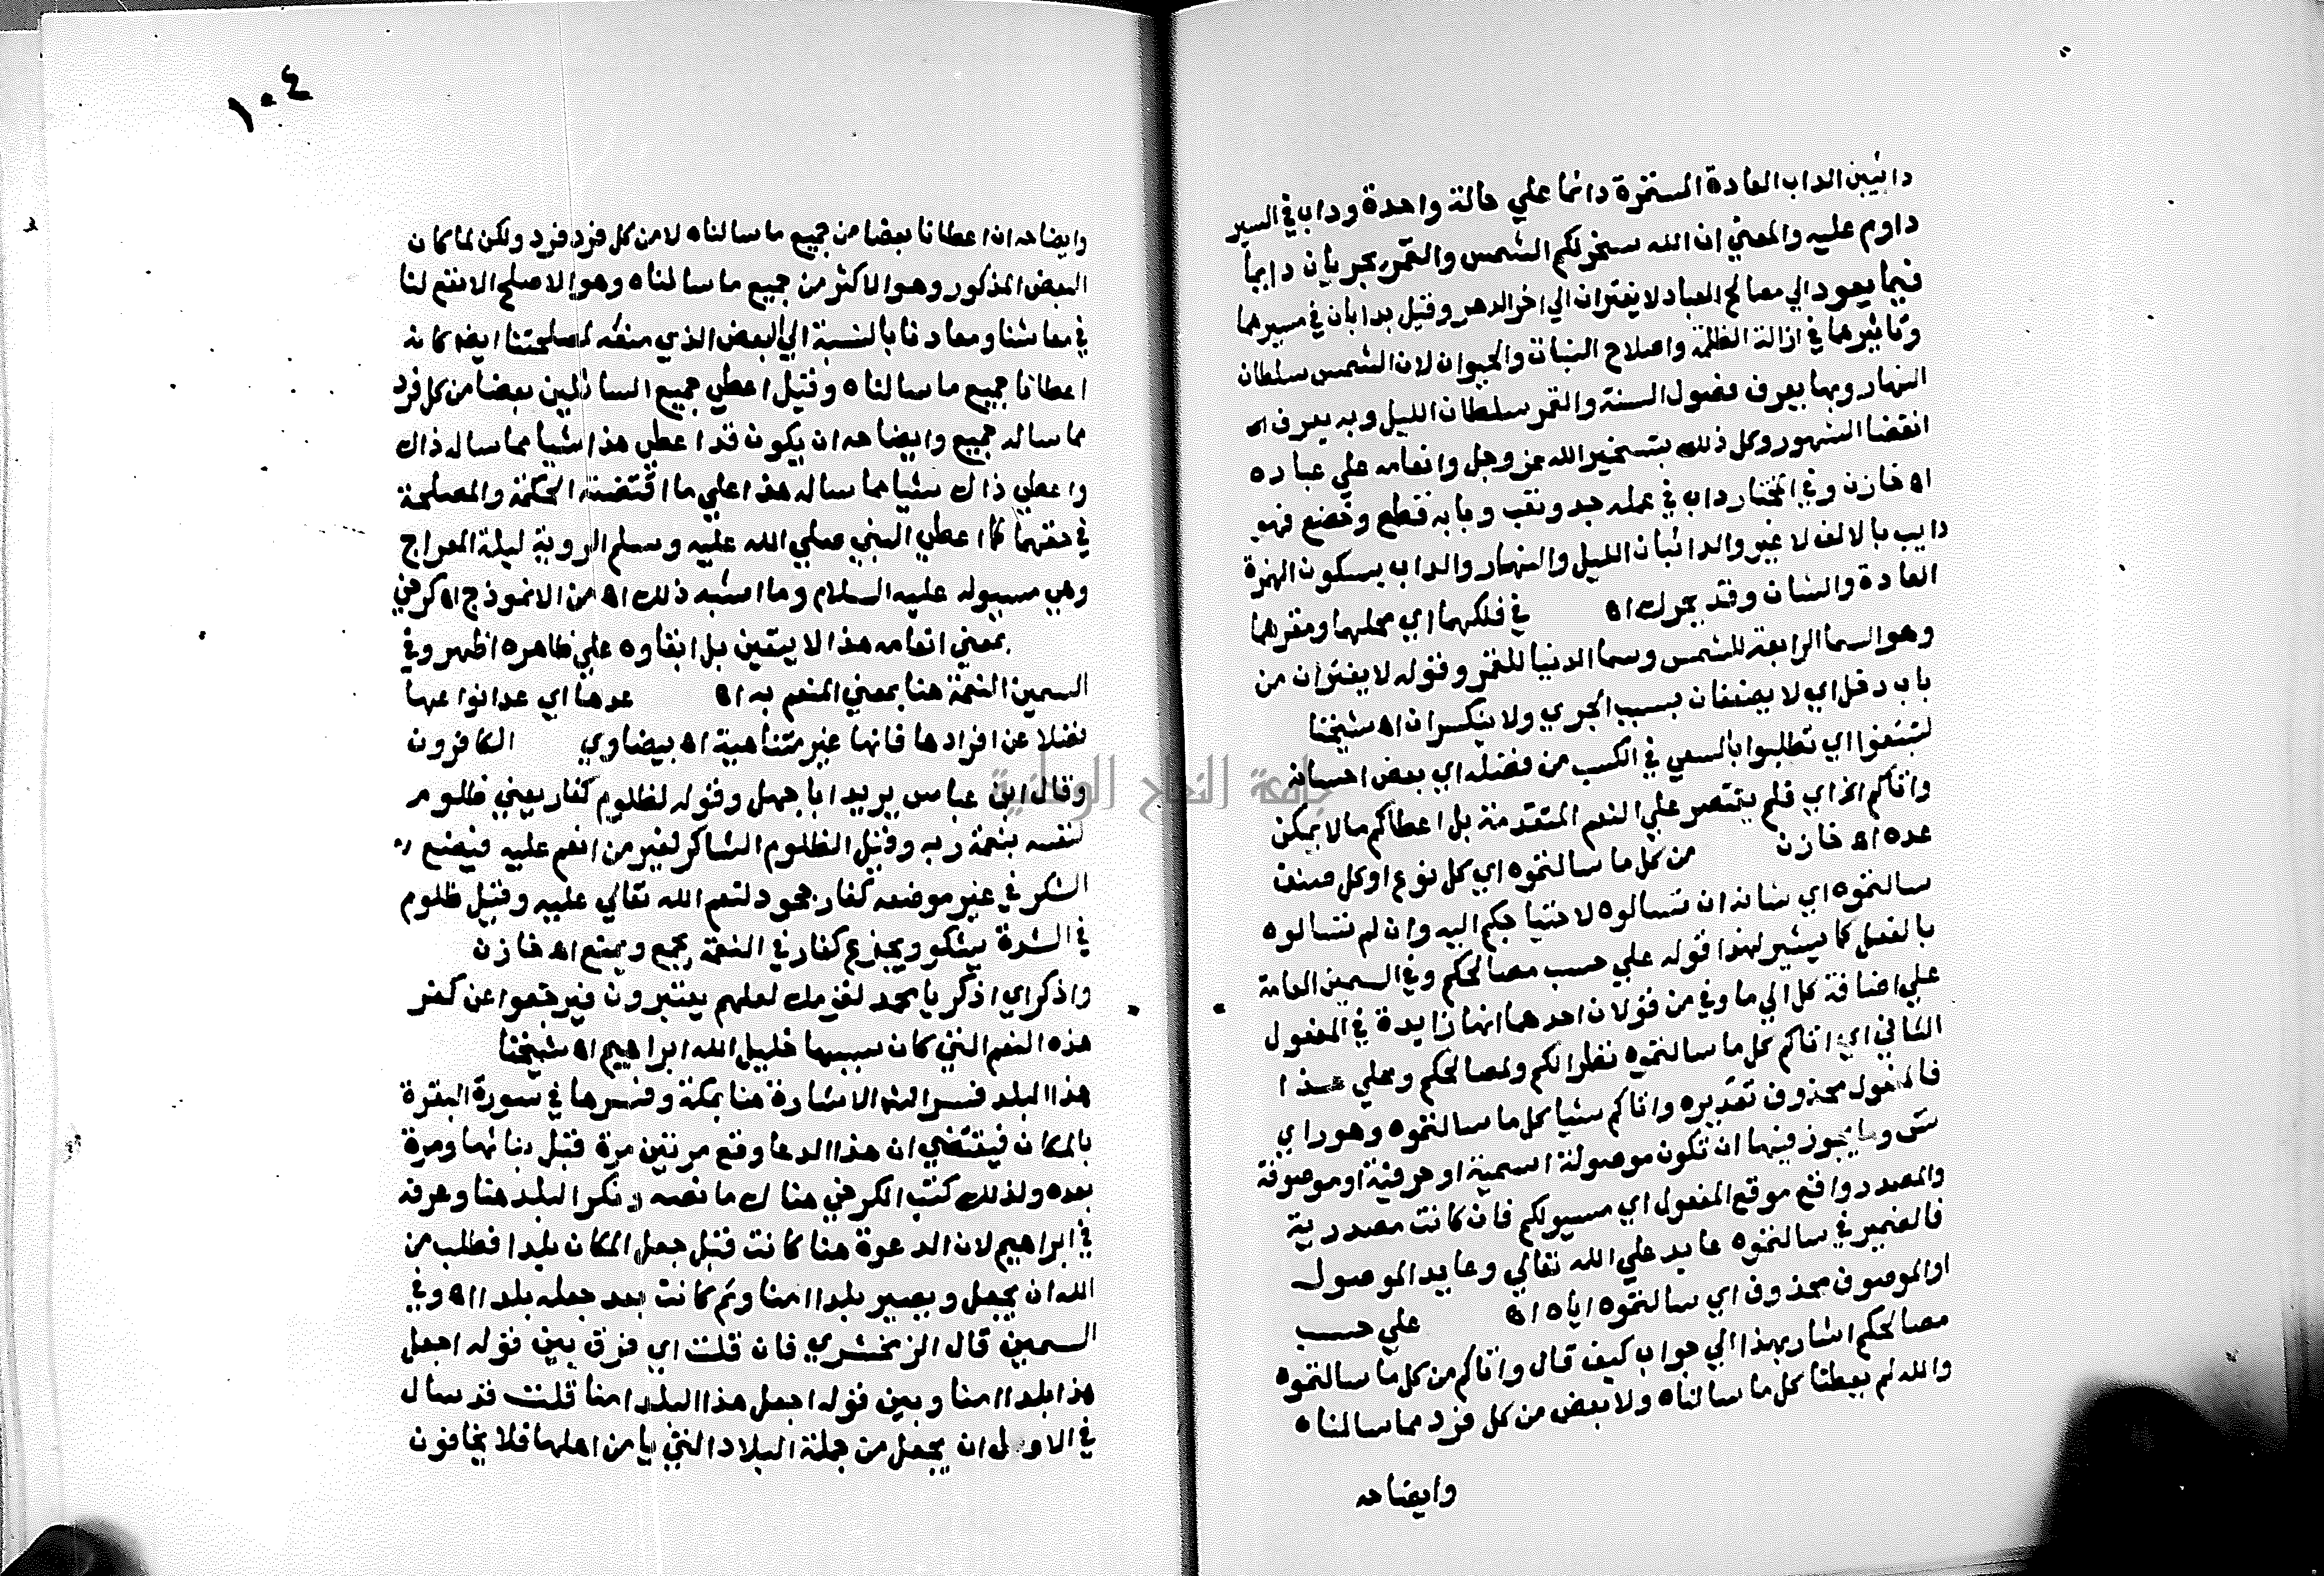 دائبين الداب العادة المستمرة دائما علي حالة واحدة وداب في السير
داوم عليه والمعني ان الله سخر لكم الشمس والقمر يجريان دايما
فيما يعود الي مصالح العباد لا يفتران الي اخر الدهر وقيل يدابان في مسيرهما
وتاثيرهما في ازالة الظلمة واصلاح النبات والحيوان لان الشمس سلطان
النهار وبها يعرف فصول السنة والقمر سلطان الليل وبه يعرف اه
انقضا الشهور وكل ذلك بتسخير الله عز وجل وانعامه علي عباده
اه خازن وفي المختار داب في عمله جد وتعب وبابه قطع وخضع فهو
دايب بالالف لا غير والدائبان الليل والنهار والداب بسكون الهمزة
العادة والشان وقد يحرك اه في فلكهما اي محلهما ومقرهما
وهو السما الرابعة للشمس وسما الدنيا للقمر وقوله لا يفتران من
باب دخل اي لا يضعفان بسبب الجري ولا ينكسران اه شيخنا
لتبتغوا اي تطلبوا بالسعي في الكسب من فضله اي بعض احسانه
واتاكم الخ اي فلم يقتصر علي النعم المتقدمة بل اعطاكم ما لا يمكن
عده اه خازن من كل ما سالتموه اي كل نوع او كل صنف
سالتموه اي شانه ان تسالوه لاحتياجكم اليه وان لم تسالوه
بالفعل كما يشير لهذا قوله علي حسب مصالحكم وفي السمين العامة
علي اضافة كل الي ما وفي من قولان احدهما انها زايدة في المفعول
الثاني اي اتاكم كل ما سالتموه نظرا لكم ولمصالحكم وعلي هذا
فالمفعول محذوف تقديره واتاكم شيا كل ما سالتموه وهو راي
س وما يجوز فيها ان تكون موصولة اسمية او حرفية او موصوفة
والمصدر واقع موقع المفعول اي مسيولكم فان كانت مصدرية
فالضمير في سالتموه عايد علي الله تعالي وعايد الموصول
او الموصوف محذوف اي سالتموه اياه اه علي حسب
مصالحكم اشار بهذا الي جواب كيف قال واتاكم من كل ما سالتموه
والله لم يعطنا كل ما سالناه ولا بعض من كل فرد مما سالناه
وايضاحه
١٠٤
وايضاحه ان اعطانا بعضا من جميع ما سالناه لا من كل فرد فرد ولكن لما كان
البعض المذكور وهو الاكثر من جميع ما سالناه وهو الاصلح الانفع لنا
في معاشنا ومعادنا بالنسبة الي البعض الذي منعه لمصلحتنا ايضا كانه
اعطانا جميع ما سالناه وقيل اعطي جميع السائلين بعضا من كل فرد
مما ساله جميع وايضاحه ان يكون قد اعطي هذا شيا مما ساله ذاك
واعطي ذاك شيا مما ساله هذا علي ما اقتضته الحكمة والمصلحة
في حقهما كما اعطي النبي صلي الله عليه وسلم الروية ليلة المعراج
وهي مسيوله عليه السلام وما اشبه ذلك اه من الانموذج اه كرخي
بمعني انعامه هذا لا يتعين بل ابقاوه علي ظاهره اظهر وفي
السمين النعمة هنا بمعني المنعم به اه عدها اي عد انواعها
فضلا عن افرادها فانها غير متناهية اه بيضاوي الكافرون
وقال ابن عباس يريد ابا جهل وقوله لظلوم كفار يعني ظلوم
لنفسه بنعمة ربه وقيل الظلوم الشاكر لغير من انعم عليه فيضع
الشكر في غير موضعه كفار جحود لنعم الله تعالي عليه وقيل ظلوم
في الشدة يشكو ويجزع كفار في النعمة يجمع ويمنع اه خازن
واذكر اي اذكر يا محمد لقومك لعلهم يعتبرون فيرجعوا عن كفر
هذه النعم التي كان سببها خليل الله ابراهيم اه شيخنا
هذا البلد فسر الشه الاشارة هنا بمكة وفسرها في سورة البقرة
بالمكان فيقتضي ان هذا الدعا وقع مرتين مرة قبل بنائها ومرة
بعده ولذلك كتب الكرخي هناك ما نصه ونكر البلد هنا وعرفه
في ابراهيم لان الدعوة هنا كانت قبل جعل المكان بلدا فطلب من
الله ان يجعل ويصير بلدا امنا وثم كانت بعد جعله بلدا اه وفي
السمين قال الزمخشري فان قلت اي فرق بين قوله اجعل
هذا بلدا امنا وبين قوله اجعل هذا البلد امنا قلت قد سال
في الاول ان يجعل من جملة البلاد التي يامن اهلها فلا يخافون
جامعة النجاح الوطنية